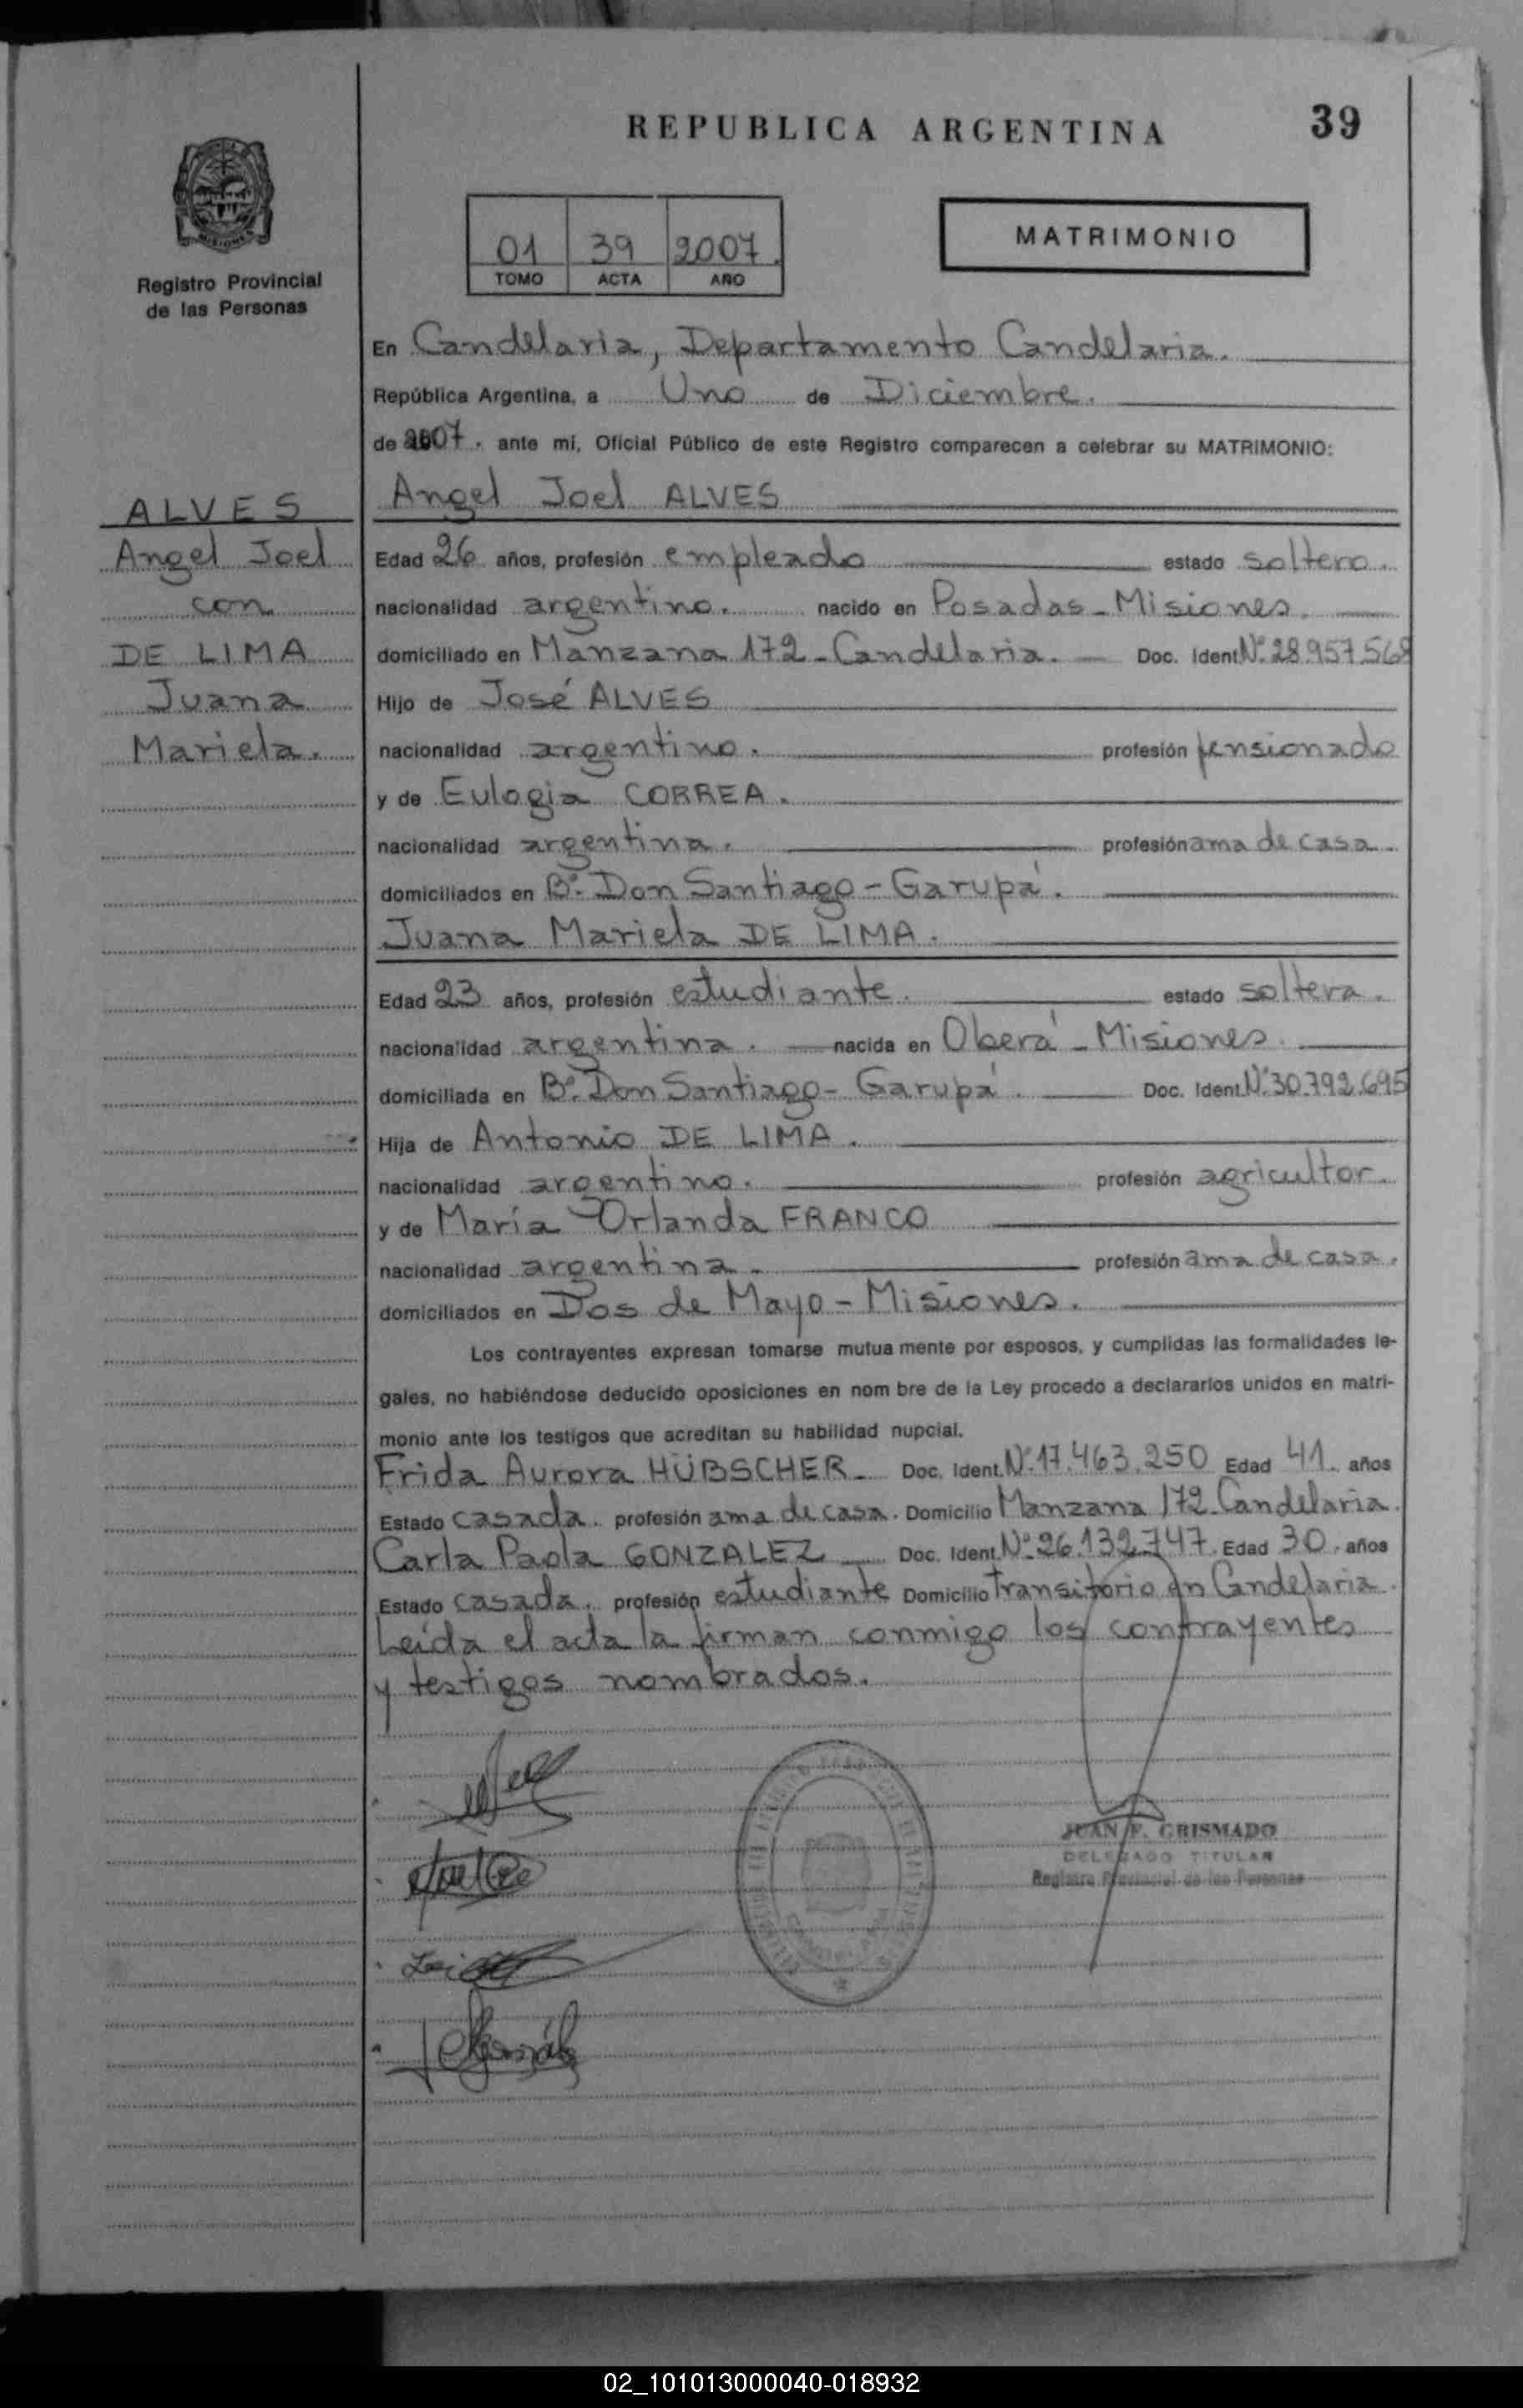 REPUBLICA ARGENTINA
39
01 39 2007
TOMO ACTA AÑO
MATRIMONIO
Registro Provincial
de las Personas
ALVES
Angel Joel
con
DE LIMA
Juana
Mariela.
En Candelaria, Departamento Candelaria.
República Argentina, a Uno de Diciembre.
de 2007. ante mí, Oficial Público de este Registro comparecen a celebrar su MATRIMONIO:
Angel Joel ALVES
Edad 26 años, profesión empleado estado soltero.
nacionalidad argentino. nacido en Posadas-Misiones.
domiciliado en Manzana 172-Candelaria. Doc. Ident. Nº 28.957.568
Hijo de José ALVES
nacionalidad argentino. profesión pensionado
y de Eulogia CORREA.
nacionalidad argentina. profesión ama de casa.
domiciliados en Bº. Don Santiago-Garupá.
Juana Mariela DE LIMA.
Edad 23 años, profesión estudiante. estado soltera.
nacionalidad argentina. nacida en Oberá-Misiones.
domiciliada en Bº. Don Santiago-Garupá. Doc. Ident. Nº 30.792.695
Hija de Antonio DE LIMA.
nacionalidad argentino. profesión agricultor.
y de María Orlanda FRANCO
nacionalidad argentina. profesión ama de casa.
domiciliados en Dos de Mayo-Misiones.
Los contrayentes expresan tomarse mutua mente por esposos, y cumplidas las formalidades le-
gales, no habiéndose deducido oposiciones en nom bre de la Ley procedo a declararlos unidos en matri-
monio ante los testigos que acreditan su habilidad nupcial.
Frida Aurora HÜBSCHER Doc. Ident. Nº 17.463.250 Edad 41. años
Estado casada. profesión ama de casa. Domicilio Manzana 172-Candelaria.
Carla Paola GONZALEZ Doc. Ident. Nº 26.132.747. Edad 30. años
Estado casada. profesión estudiante Domicilio Transitorio en Candelaria.
Leída el acta la firman conmigo los contrayentes
y testigos nombrados.
JUAN F. GRISMADO
DELEGADO TITULAR
Registro Provincial de las Personas
02_101013000040-018932